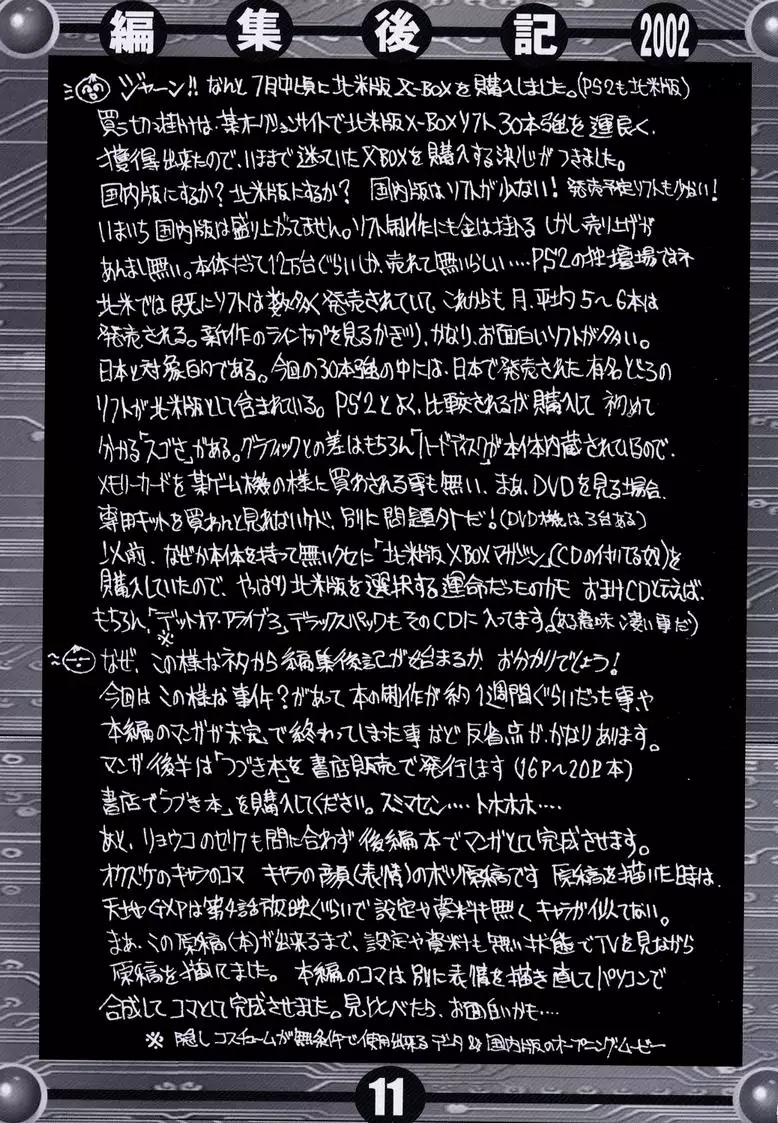 編集後記 2002
ジャーン!! なんと7月中頃に北米版X-BOXを購入しました。(PS2も北米版)
買う切っ掛けは、某オークションサイトで北米版X-BOXソフト30本強を運良く、
獲得出来たので、いままで迷っていたXBOXを購入する決心がつきました。
国内版にするか? 北米版にするか? 国内版はソフトが少ない! 発売予定ソフトも少ない!
いまいち国内版は盛り上がってません。ソフト制作にも金は掛る しかし売り上げが
あんまし無い。本体だって12万台ぐらいしか、売れて無いらしい‥‥PS2の独壇場ですネ
北米では既にソフトは数多く発売されていて、これからも月、平均5〜6本は
発売される。新作のラインナップを見るかぎり、かなり、お面白いソフトが多い。
日本と対象的である。今回の30本強の中には、日本で発売された有名どころの
ソフトが北米版として含まれている。PS2とよく、比較されるが購入して 初めて
分かる「スゴさ」がある。グラフィックとの差はもちろん「ハードディスク」が本体内蔵されているので、
メモリーカードを某ゲーム機の様に買わされる事も無い、まあ、DVDを見る場合、
専用キットを買わんと見れないケド、別に問題外だ!(DVD機は3台ある)
以前、なぜか本体を持って無いクセに「北米版XBOXマガジン」(CDの付いてる奴)を
購入していたので、やっぱり北米版を選択する運命だったのかも おまけCDと云えば、
もちろん、「デットオア・アライブ3」デラックスパックもそのCDに入ってます。(ある意味 凄い事だ)
※
なぜ、この様なネタから編集後記が始まるか お分かりでしょう!
今回はこの様な事件?があって本の制作が約1週間ぐらいだった事、や
本編のマンガが未完、で終わってしまった事など反省点が、かなりあります。
マンガ後半は「つづき本」を書店販売で発行します(16P〜20P本)
書店で「つづき本」を購入してください。スミマセン‥‥トホホホ‥‥
あと、リョウコのゼクも間に合わず後編本でマンガとして完成させます。
オクヅケのキャラのコマ キャラの顔(表情)のボツ原稿です 原稿を描いた時は、
天地GXPは第4話放映ぐらいで設定や資料も無く キャラが似てない。
まあ、この原稿(本)が出来るまで、設定や資料も無い状態でTVを見ながら
原稿を描いてました。 本編のコマは別に表情を描き直してパソコンで
合成してコマとして完成させました。見比べたら、お面白いかも‥‥
※ 隠しコスチュームが無条件で使用出来るデータ&国内版のオープニングムービー
11